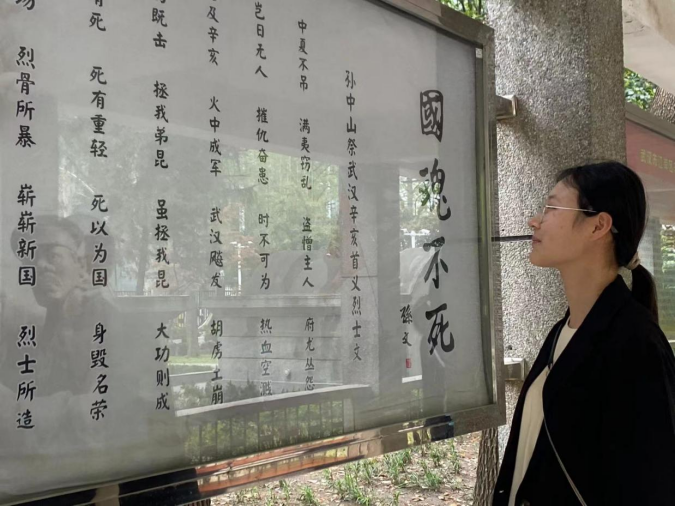 國魂不死
孫文
孙中山祭武汉辛亥首义烈士文
中夏不吊 满夷窃乱 盗憎主人 府尤丛怨
岂曰无人 摧仇奋患 时不可为 热血空溅
及辛亥 火中成军 武汉飚发 胡虏土崩
既击 拯我弟昆 虽拯我昆 大功则成
有死 死有重轻 死以为国 身毁名荣
场 烈骨所暴 崭崭新国 烈士所造